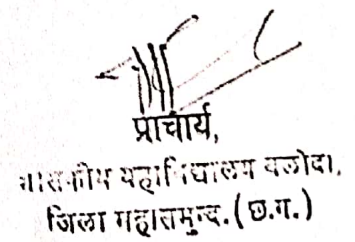 प्राचार्य,
शासकीय महाविद्यालय बलोदा,
जिला महासमुन्द. (छ.ग.)